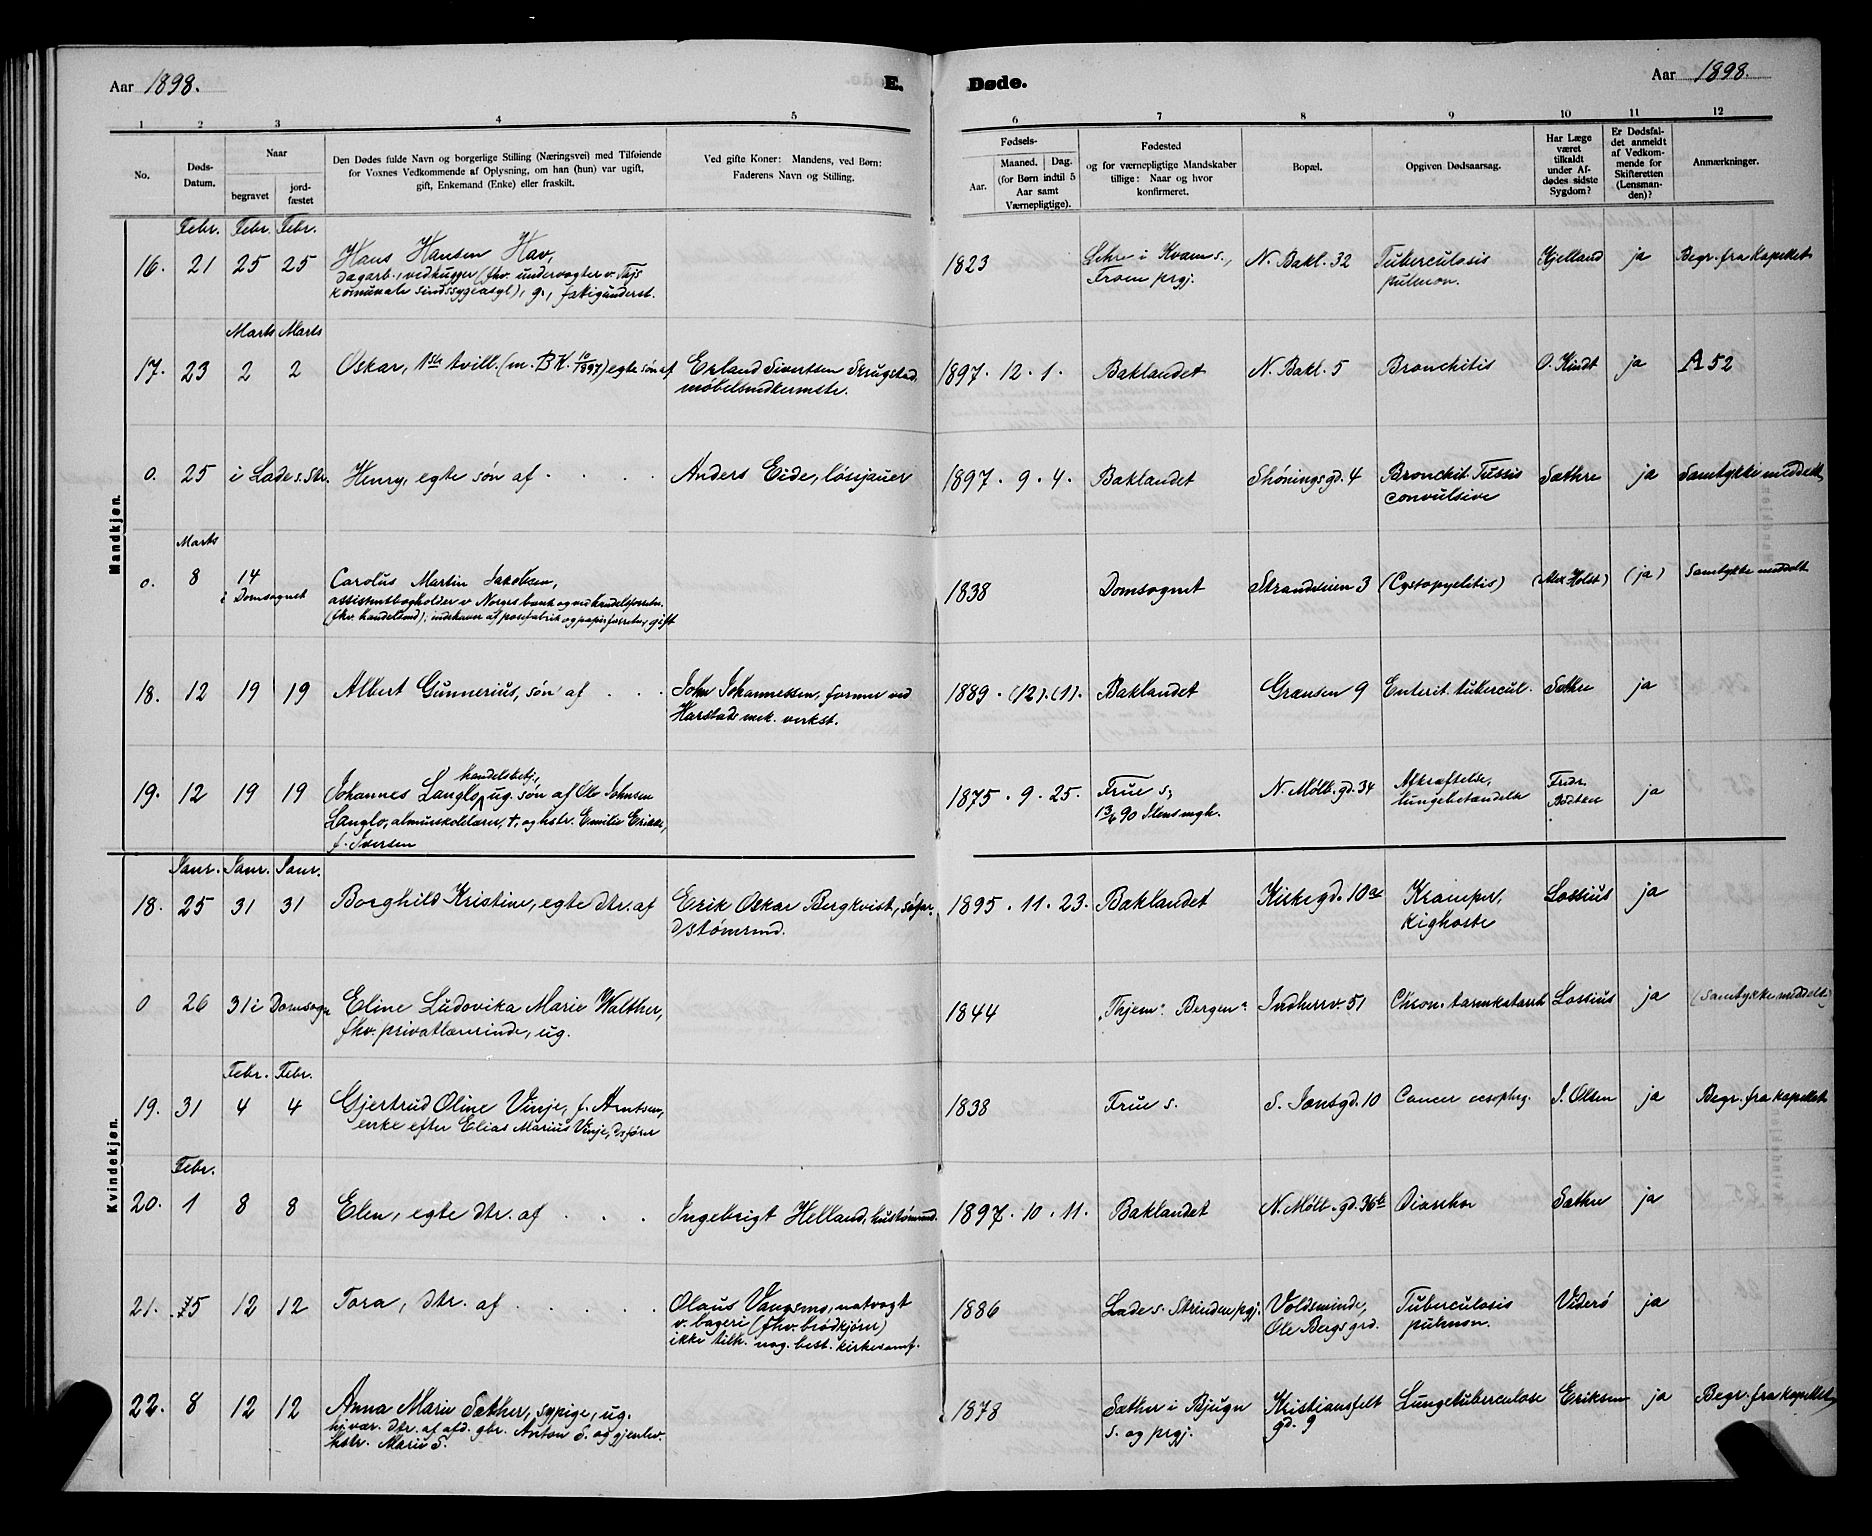 Aar 1898.
E.
Døde.
Aar 1898.
1 2 3 4 5 6 7 8 9 10 11 12
No.
Døds-
Datum.
Naar
begravet
jord-
fæstet
Den Dødes fulde Navn og borgerlige Stilling (Næringsvei) med Tilføiende
for Voxnes Vedkommende af Oplysning, om han (hun) var ugift,
gift, Enkemand (Enke) eller fraskilt.
Ved gifte Koner: Mandens, ved Børn:
Faderens Navn og Stilling.
Fødsels-
Aar.
Maaned. Dag.
(for Børn indtil 5
Aar samt
Værnepligtige).
Fødested
og for værnepligtige Mandskaber
tillige: Naar og hvor
konfirmeret.
Bopæl.
Opgiven Dødsaarsag.
Har Læge
været
tilkaldt
under Af-
dødes sidste
Sygdom?
Er Dødsfal-
det anmeldt
af Vedkom-
mende for
Skifteretten
(Lensman-
den)?
Anmærkninger.
Mandkjøn.
Febr. Febr. Febr.
16. 21 25 25 Hans Hansen Hav, 1823 i Kvam s., N. Bakl. 32 Tuberculosis Kjelland ja Begr. fra kapellet
dagarb., vedhugger (fhv. undervogter v. Tajs Froen prgj. pulmon.
komunale sindssygeasyl), g., fatigunderst.
Marts Marts
17. 23 2 2 Oskar, 1ste tvill. (m. BK. 10/1897) egte søn af Erland Sivertsen Skrugstad, 1897. 12. 1. Baklandet N. Bakl. 5 Bronchitis O. Kindt ja A 52
møbelsnedkermstr.
0. 25 i Lade s. Str. Henry, egte søn af . . . Anders Eide, løsjauer 1897. 9. 4. Baklandet Shøningsgd. 4 Bronchit. Tussis Sæthre ja Samtykke meddelt
convulsive
Marts
0. 8 14 Carolus Martin Jakobsen, 1838 Domsognet Strandveien 3 (Cystopyelitis) (Alex Holst) (ja) Samtykke meddelt
i Domsognet assistentbogholder v Norges bank og ved handelsforetn.
(fhv. handelsmd); indehaver af posefabrik og papirforretn., gift
18. 12 19 19 Albert Gunnerius, søn af . . . John Johannessen, former ved 1889. (12). (1). Baklandet Grænsen 9 Enterit. tubercul. Sæthre ja
Harstads mek. verkst.
handelsbetj.,
19. 12 19 19 Johannes Langlo, ug. søn af Ole Johnsen 1875. 9. 25. Frue s; N. Møllb. gd. 34 Afkræftelse, Fredr. ja
Langlo, almueskolelærer, †, og hstr. Emilie Erikke, 90 lungebetændelse Bødtker
f. Iversen
Kvindekjøn.
Janr. Janr. Janr.
18. 25 31 31 Borghild Kristine, egte dtr. af Erik Oskar Bergkvist, 1895. 11. 23. Baklandet Kirkegd. 10 Kramper, Lossius ja
kighoste
0 26 31 i Domsogn Eline Ludovika Marie Walther, 1844 "Thjem" Bergen" Indherrv. 51 Chron. tarmkatarrh Lossius ja (Samtykke meddelt)
fhv. privatlærerinde, ug.
Febr. Febr.
19. 31 4 4 Gjertrud Oline Vinje, f. Arntsen, 1838 Frue s. S. Jonsgd. 10 Cancer oesophag. J. Olsen ja Begr. fra kapellet
enke efter Elias Marius Vinje, dsfører
Febr.
20. 1 8 8 Elen, egte dtr. af . . . Ingebrigt Helland, hustømrmd. 1897. 10. 11. Baklandet N. Møllb. gd. 36 Diarrhø Sæthre ja
21. 5 12 12 Tora, dtr. af . . . Olaus Vangsmo, natvagt 1886 Lade s. Strinden prgj. Voldsminde, Tuberculosis Viderö ja
v. bageri (fhv. brødkjører) Ole Bergs grd. pulmon.
ikke tilh. nog. best. kirkesamf.
22. 8 12 12 Anna Marie Sæther, sypige, ug. 1878 Sæther i Bjugn Kristiansfelt Lungetuberculose Eriksen ja Begr. fra kapellet
hj.vær. dtr. af afd. gbr. Anton S. og gjenlev. s. og prgj. gd. 9
hstr. Marie S.